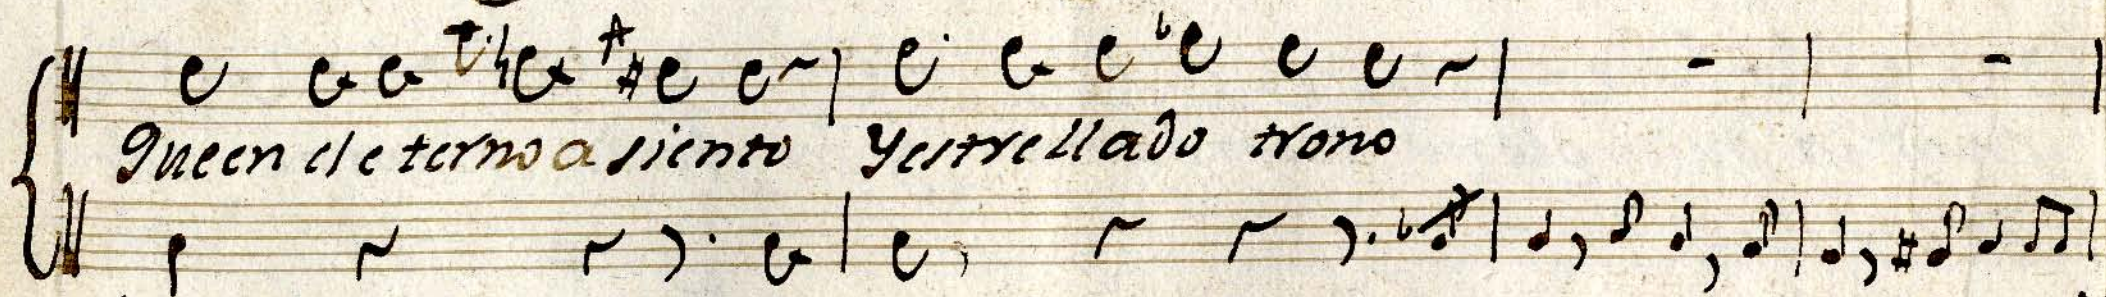 Queen el eterno asiento Yestrellado trono